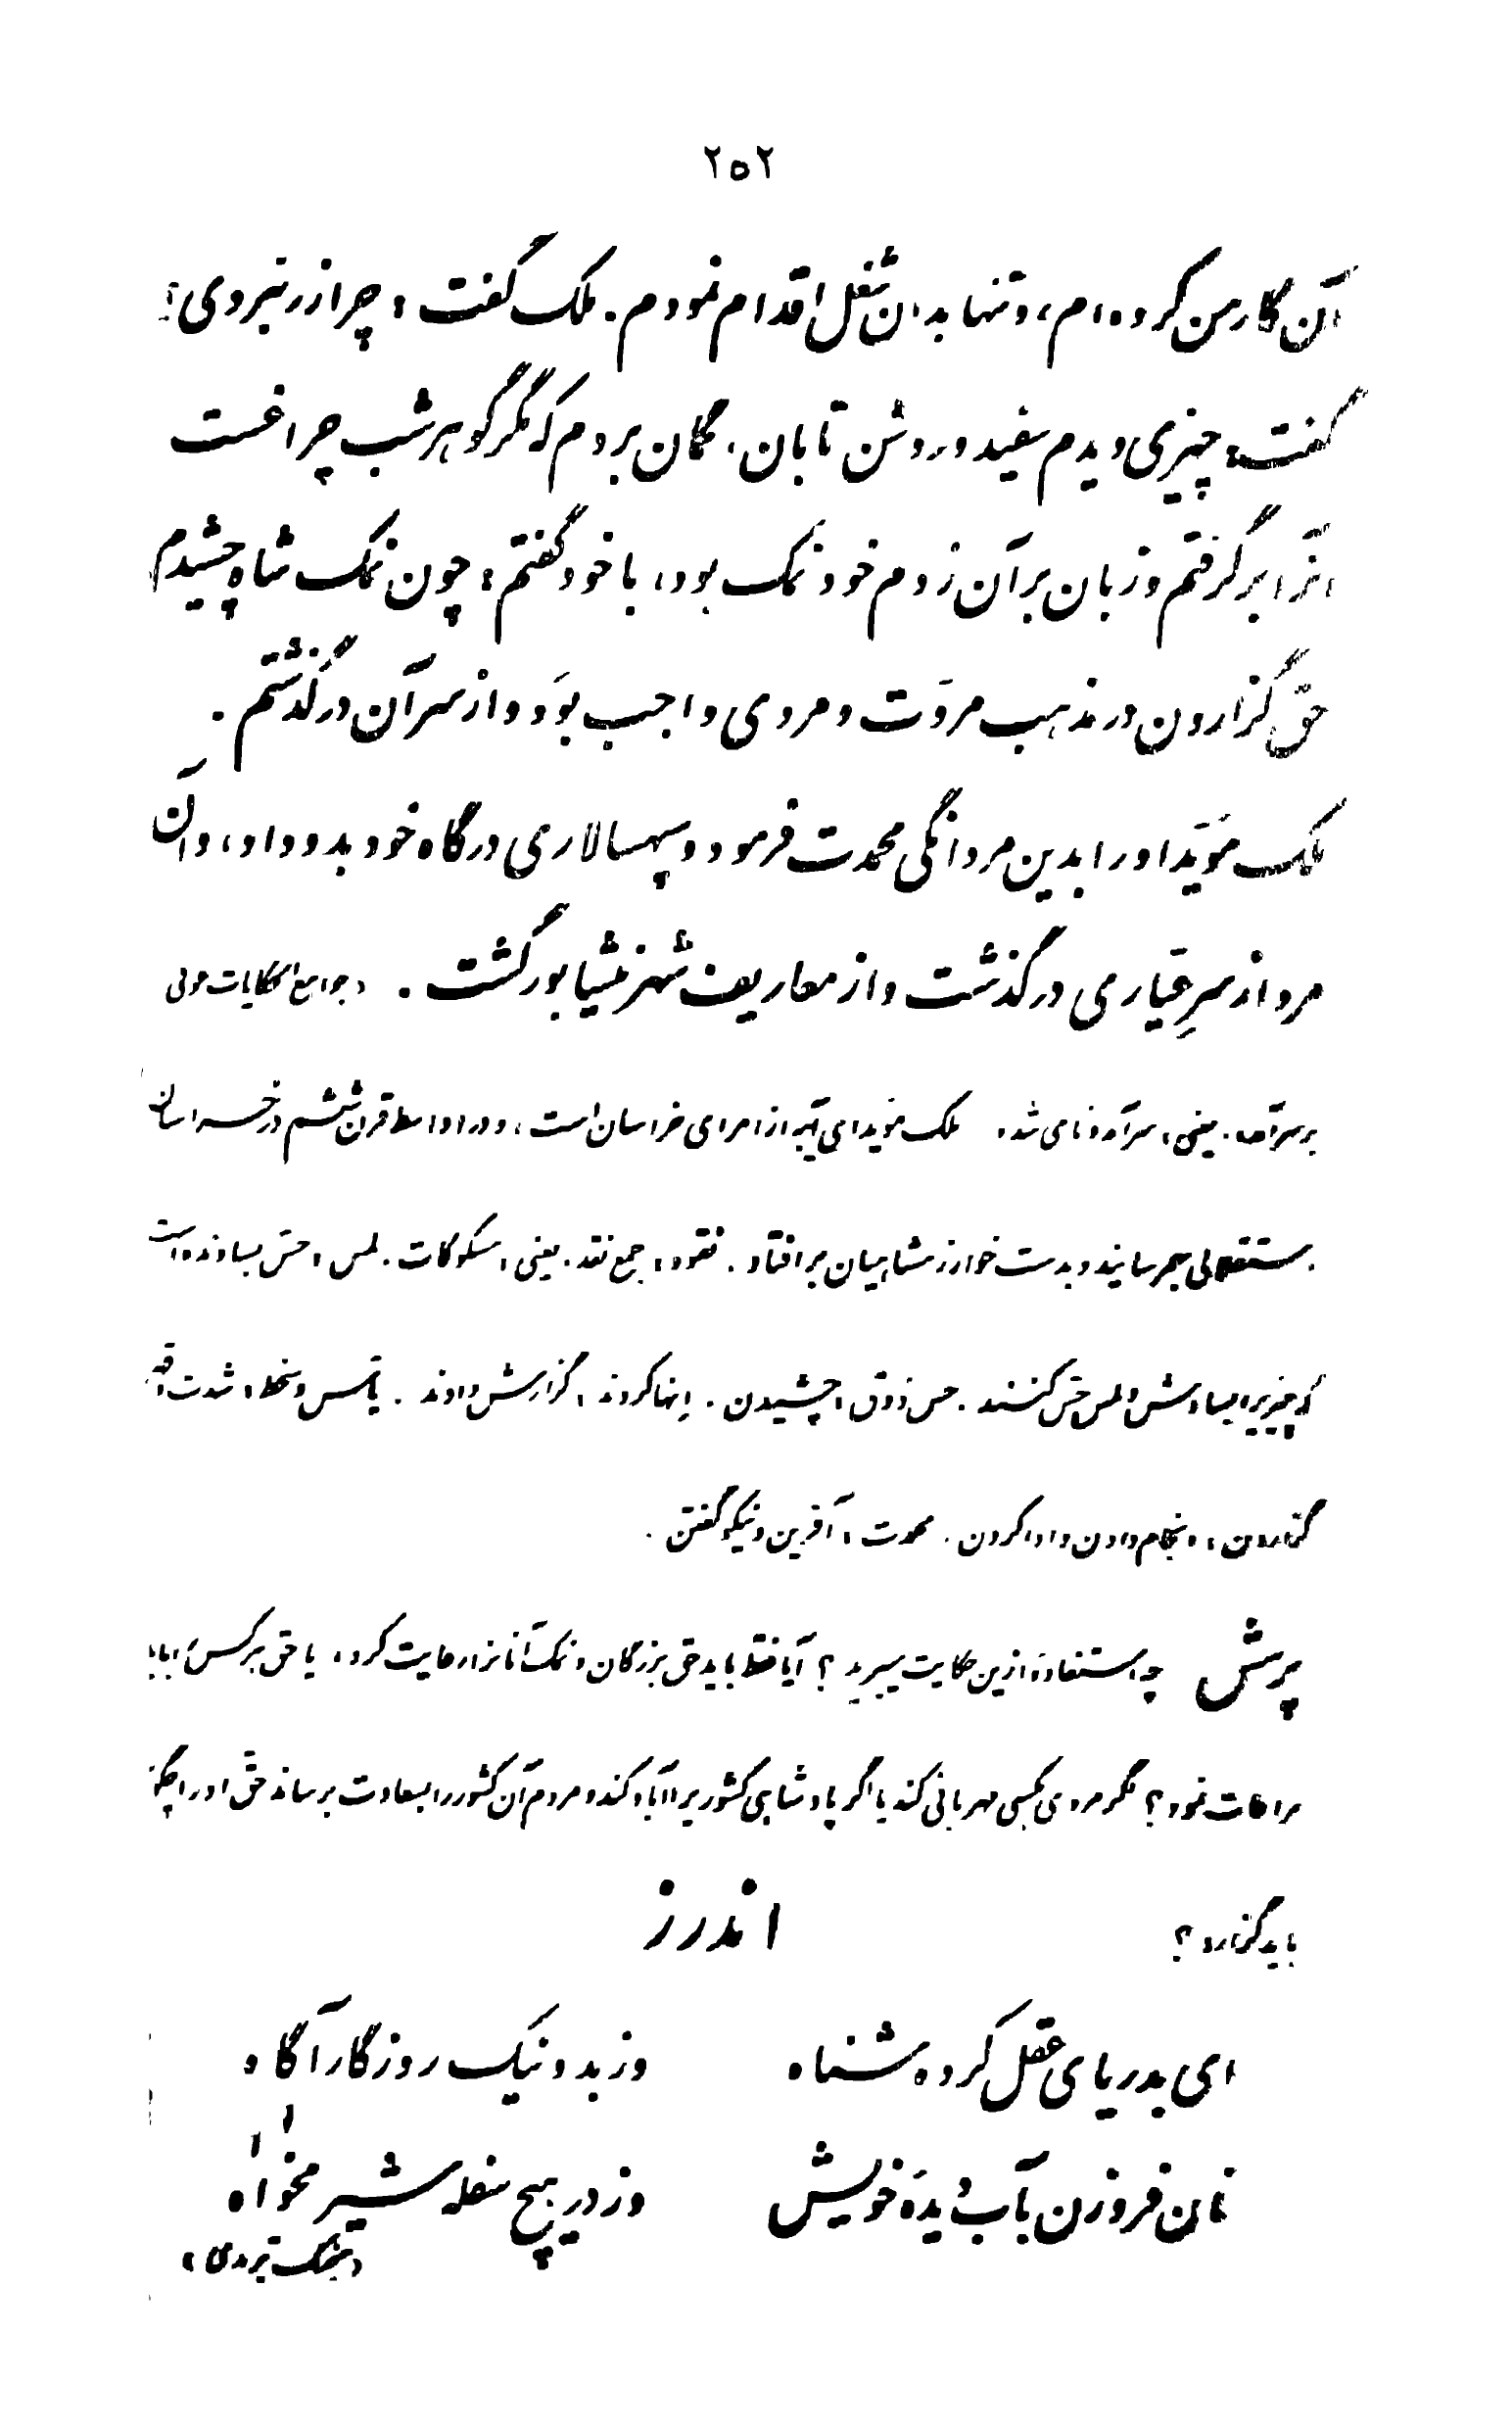 ۲۵۲
آن کار من کرده‌ام، و تنها بدان شغل اقدام نمودم. ملک گفت: چرا زر نبردی؟
گفت: چیزی دیدم سفید و روشن تابان. گمان بردم که مگر گوهر شب چراغست
آنرا برگرفتم و زبان بر آن زدم خود نمک بود، با خود گفتم: چون نمک شاه چشیدم
حق گزاردن در مذهب مروّت و مردی واجب بوَد و از سر آن درگذشتم.
ملک مؤیّد او را بدین مردانگی محمدت فرمود و سپهسالاری درگاه خود بدو داد، و آن
مرد از سرِ عیّاری درگذشت و از معاریف شهر نیشابور گشت. «جوامع الحکایات عوفی
بر سر آمد. یعنی، سرآمد و نامی شد. ملک مؤید ای آبه از امرای خراسان است، و در اواسط قرن ششم در خراسان
استقلالی بهم رسانید و بدست خوارزمشاهیان برافتاد. نقود، جمع نقد. یعنی، مسکوکات. لمس، حسّ بساونده است
که چیزیرا بساوش و لمس حسّ کنند. حس ذوق، چشیدن. اِنها کردند، گزارش دادند.
گزاردن، انجام دادن و ادا کردن. محمدت، آفرین و نیکو گفتن.
پرسش چه استفاده ازین حکایت میبرید؟ آیا فقط باید حق بزرگان و نمک آنانرا رعایت کرد، یا حق هر کس را باید
مراعات نمود؟ اگر مردی بکسی مهربانی کند یا اگر پادشاهی کشوریرا آباد کند و مردم آن کشور را بسعادت برساند حقّ او را چگونه
باید گزارد؟
اندرز
ای بدریای عقل کرده شناه    وز بد و نیک روزگار آگاه
نان فرو زن بآب دیدهٔ خویش    وز در هیچ سفله شیر مخواه
«منجیک ترمدی»